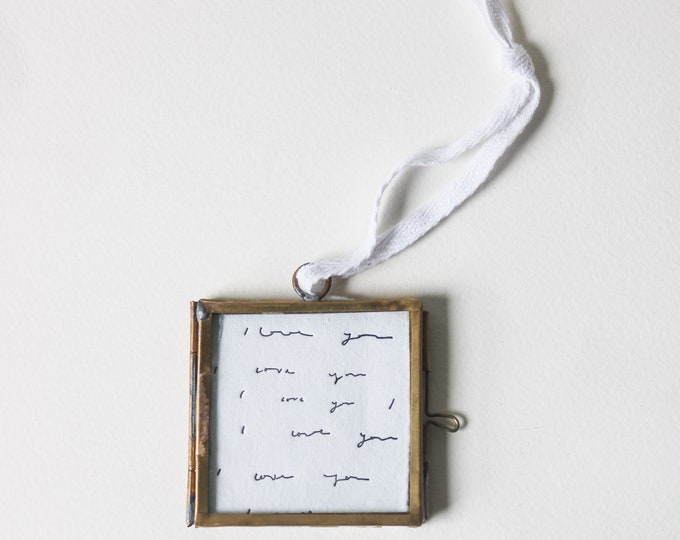 I love you
I love you
I love you I
I love you
I love you